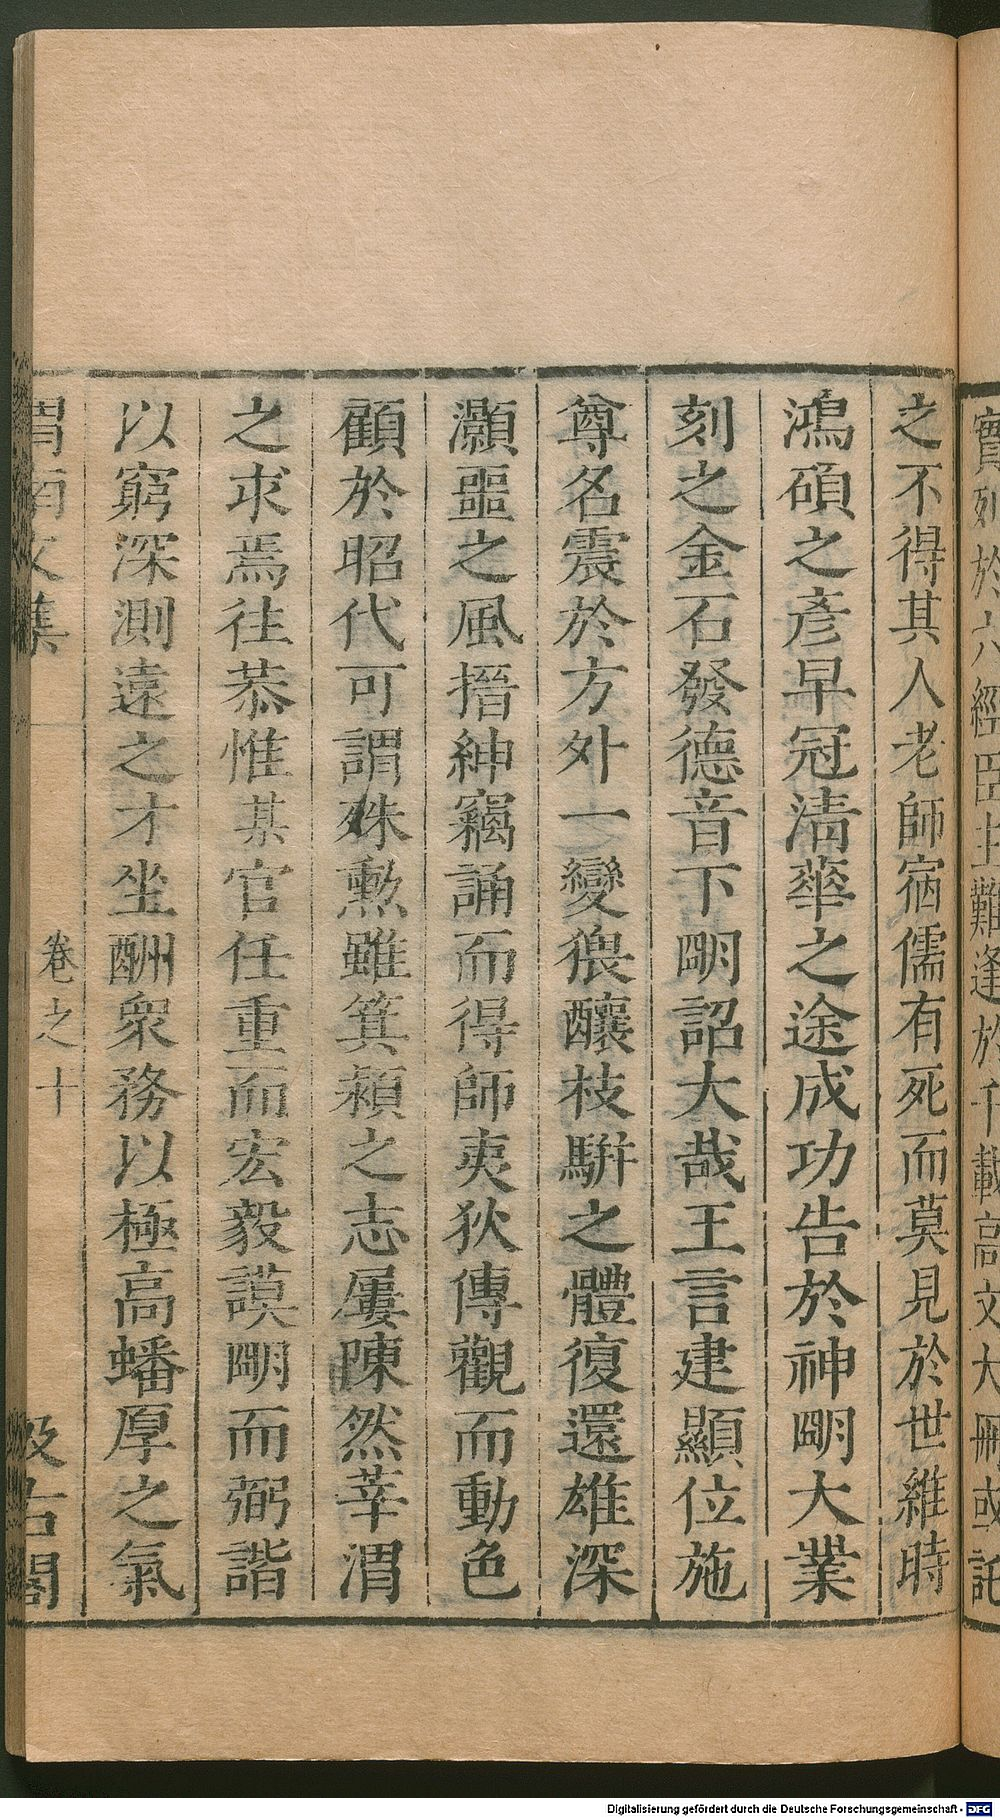 實列於六經臣主難逢於千載高文大冊或託
之不得其人老師宿儒有死而莫見於世維時
鴻碩之彥早冠清華之途成功告於神明大業
刻之金石發德音下明詔大哉王言建顯位施
尊名震於方外一變猥釀枝駢之體復還雄深
灝噩之風搢紳竊誦而得師夷狄傳觀而動色
顧於昭代可謂殊勳雖箕潁之志屢陳然莘渭
之求焉往恭惟某官任重而宏毅謨明而弼諧
以窮深測遠之才坐酬衆務以極高蟠厚之氣
渭南文集 卷之十 汲古閣
Digitalisierung gefördert durch die Deutsche Forschungsgemeinschaft - DFG